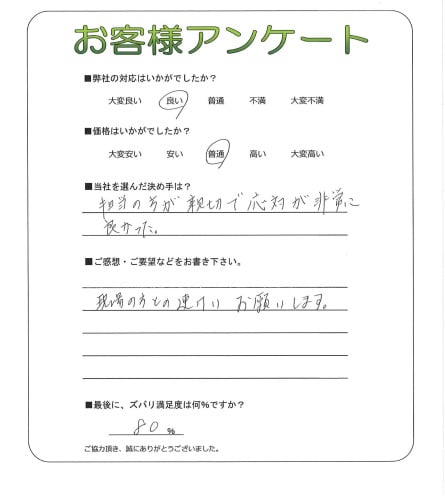 お客様アンケート
■弊社の対応はいかがでしたか？
大変良い 良い 普通 不満 大変不満
■価格はいかがでしたか？
大変安い 安い 普通 高い 大変高い
■当社を選んだ決め手は？
担当の方が親切で応対が非常に
良かった。
■ご感想・ご要望などをお書き下さい。
現場の方との連けい お願いします。
■最後に、ズバリ満足度は何%ですか？
80 %
ご協力頂き、誠にありがとうございました。